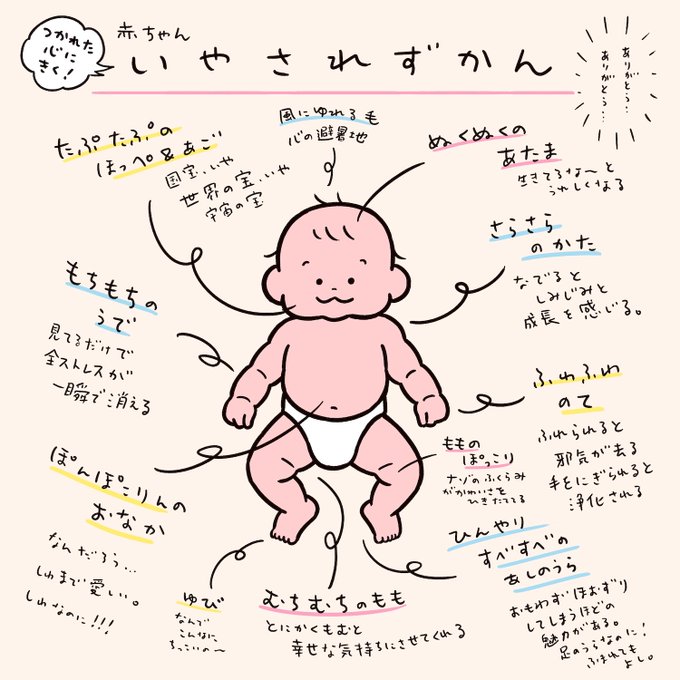 つかれた
心に
きく！
赤ちゃん
いやされずかん
ありがとう…
ありがとう…
風にゆれる毛
心の避暑地
たぷたぷの
ほっぺ&あご
国宝…いや
世界の宝…いや
宇宙の宝
ぬくぬくの
あたま
生きてるな〜と
うれしくなる
さらさら
のかた
なでると
しみじみと
成長を感じる。
もちもちの
うで
見てるだけで
全ストレスが
一瞬で消える
ふわふわ
のて
ふれられると
邪気が去る
手をにぎられると
浄化される
ももの
ぽっこり
ナゾのふくらみ
がかわいさを
ひきたててる
ぽんぽこりんの
おなか
なんだろう…
しわまで愛しい。
しわなのに!!!
ゆび
なんで
こんなに
ちっこいの〜
むちむちのもも
とにかくもむと
幸せな気持ちにさせてくれる
ひんやり
すべすべの
あしのうら
おもわずほおずり
してしまうほどの
魅力がある。
足のうらなのに！
ふまれても
よし。